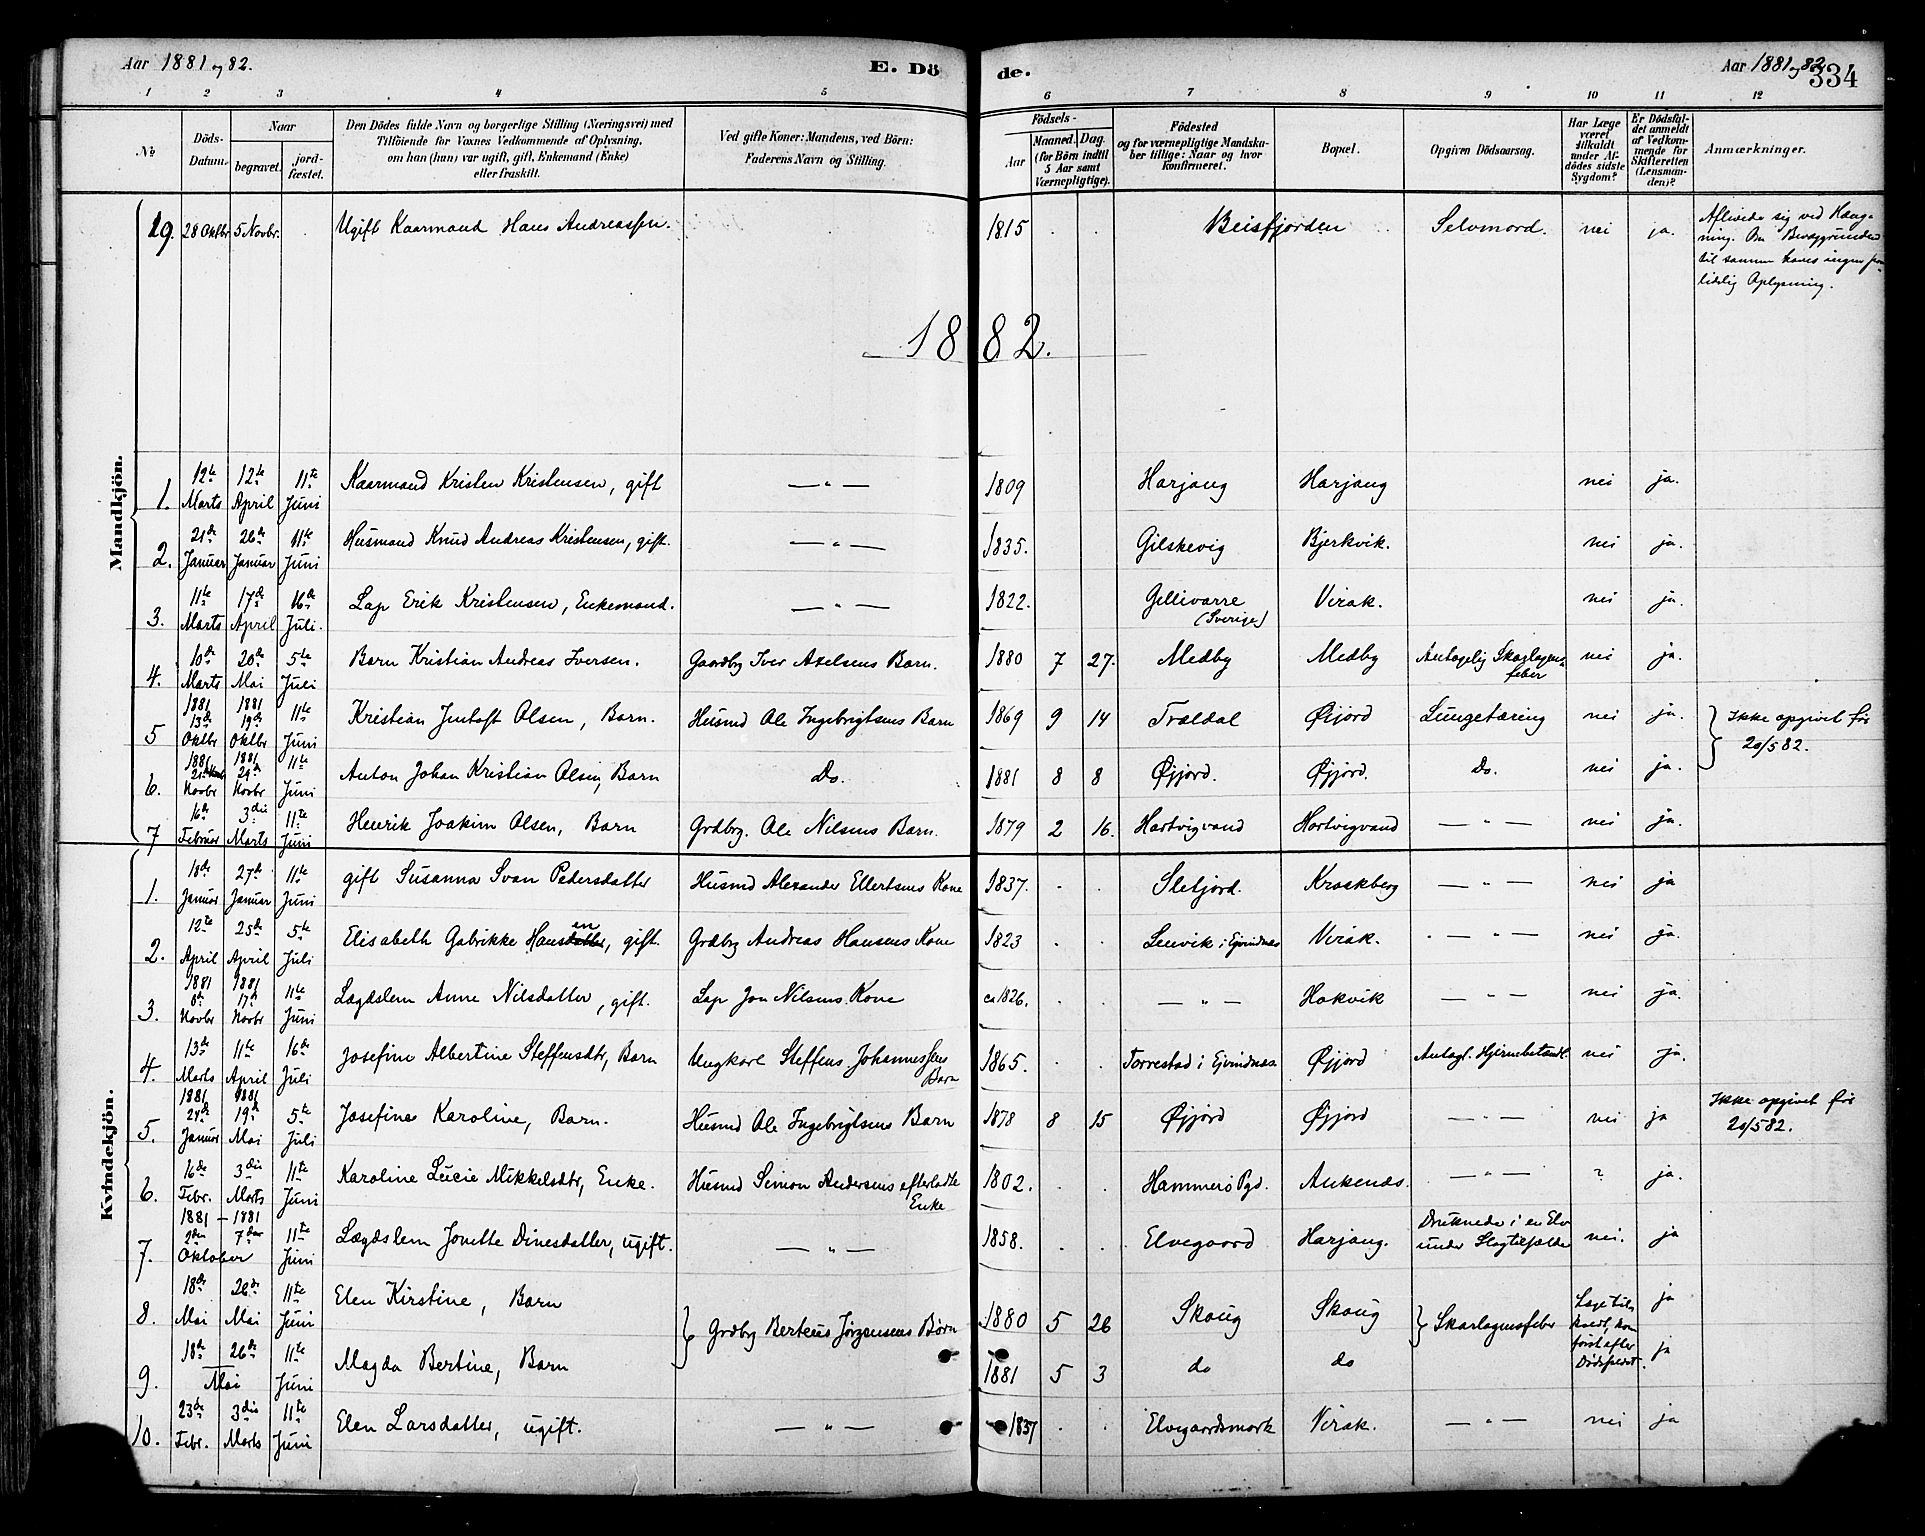 Aar 1881 og 82.
E. Dö
de.
Aar 1881 og 82
334
1 2 3 4 5 6 7 8 9 10 11 12
No
Döds-Datum.
Naar
begravet.
jord-fæstet.
Den Dödes fulde Navn og borgerlige Stilling (Næringsvei) med
Tilföiende for Voxnes Vedkommende af Oplysning,
om han (hun) var ugift, gift, Enkemand (Enke)
eller fraskilt.
Ved gifte Koner: Mandens, ved Börn:
Faderens Navn og Stilling.
Födsels-
Aar
Maaned. Dag.
(for Börn indtil
5 Aar samt
Værnepligtige).
Födested
og for værnepligtige Mandska-
ber tillige: Naar og hvor
konfirmeret.
Bopæl.
Opgiven Dödsaarsag.
Har Læge
været
tilkaldt
under Af-
dödes sidste
Sygdom?
Er Dödsfal-
det anmeldt
af Vedkom-
mende for
Skifteretten
(Lensman-
den)?
Anmærkninger.
Mandkjön.
19. 28 Oktbr 5 Novbr. Ugift Kaarmand Hans Andreassen. 1815 Beisfjorden Selvmord. nei ja. Aflivede sig ved Hæng-
ning. Om Bevæggrunden
til samme haves ingen paa-
lidelig Oplysning.
1882.
1. 12te Marts 12te April 11te Juni Kaarmand Kristen Kristensen, gift — " — 1809 Harjang Harjang nei ja.
2. 21de Januar 26de Januar 11te Juni Husmand Knud Andreas Kristensen, gift. — " — 1835. Gilskevig Bjerkvik. nei ja.
3. 11te Marts 17de April 16de Juli. Lap Erik Kristensen, Enkemand. — " — 1822. Gellivarre (Sverige) Virak. nei ja.
4. 10de Marts 20de Mai 5te Juli Barn Kristian Andreas Iversen. Gaardbr Iver Axelsens Barn. 1880 7 27. Medby Medby Antagelig Skarlagens-
feber nei ja.
5 1881 13de Oktbr 1881 19de Oktbr 11te Juni Kristian Justoft Olsen, Barn. Husmd Ole Ingebrigtsens Barn 1869 9 14 Trældal Øijord Lungetæring nei ja. } Ikke opgivet før
20/5 82.
6. 1881 21de Novbr 1881 29de Novbr 11te Juni Anton Johan Kristian Olsen, Barn Do. 1881 8 8 Øjjord. Øjjord. Do. nei ja.
7 16de Februar 3die Marts 11te Juni Henrik Joakim Olsen, Barn Grdbrg. Ole Nilsens Barn. 1879 2 16. Hartvigvand Hartvigvand — " — nei ja.
Kvindekjön.
1. 18de Januar 27de Januar 11te Juni gift Susanna Svan Pedersdatter Husmd Alexander Ellertsens Kone 1837. Sletjord. Kraakberg — " — nei ja
2. 12te April 25de April 5te Juli Elisabeth Gabrikke Hansdatter en, gift. Grdbrg Andreas Hansens Kone 1823 Lenvik i Ejvindnæs Virak. — " — nei ja.
3. 1881 6te Novbr 1881 17de Novbr 11te Juni Lægdslem Anne Nilsdatter, gift. Lap Jon Nilsens Kone ca 1826. — " — Hakvik — " — nei ja.
4. 13de Marts 11te April 16de Juli Josefine Albertine Steffensdtr, Barn Ungkarl Steffens Johannessens
Barn 1865. Torrestad i Ejvindnæs. Øjjord Antagl. Hjernebetændl. nei ja.
5. 1881 24de Januar 1881 19de Mai 5te Juli Josefine Karoline, Barn. Husmd Ole Ingebrigtsens Barn 1878 8 15 Øjjord Øjjord — " — nei ja Ikke opgivet før
20/5 82.
6. 16de Febr. 3die Marts 11te Juni Karoline Lucie Mikkelsdtr, Enke. Husmd Simon Andersens efterladte
Enke 1802. Hammerø Pgd. Ankenæs. — " — ? ja.
7. 1881 – 1881 2den 7de Oktober 11te Juni Lægdslem Jonette Dinesdatter, ugift. — " — 1858. Elvegaard Harjang. Druknede i en Elv
under Slagtilfælde nei. ja
8. 18de Mai 26de Mai 11te Juni Elen Kirstine, Barn } Grdbrg Berteus Jørgensens Børn 1880 5 26 Skoug Skoug } Skarlagensfeber Læge til-
kaldt, kom
først efter
Dödsfaldet. ja
9. 18de 26de Mai 11te Juni Magda Bertine, Barn 1881 5 3 do do ja
10. 23de Febr. 3die Marts 11te Juni Elen Larsdatter, ugift. — " — 1837 Elvegaardsmark Virak. — " — nei ja